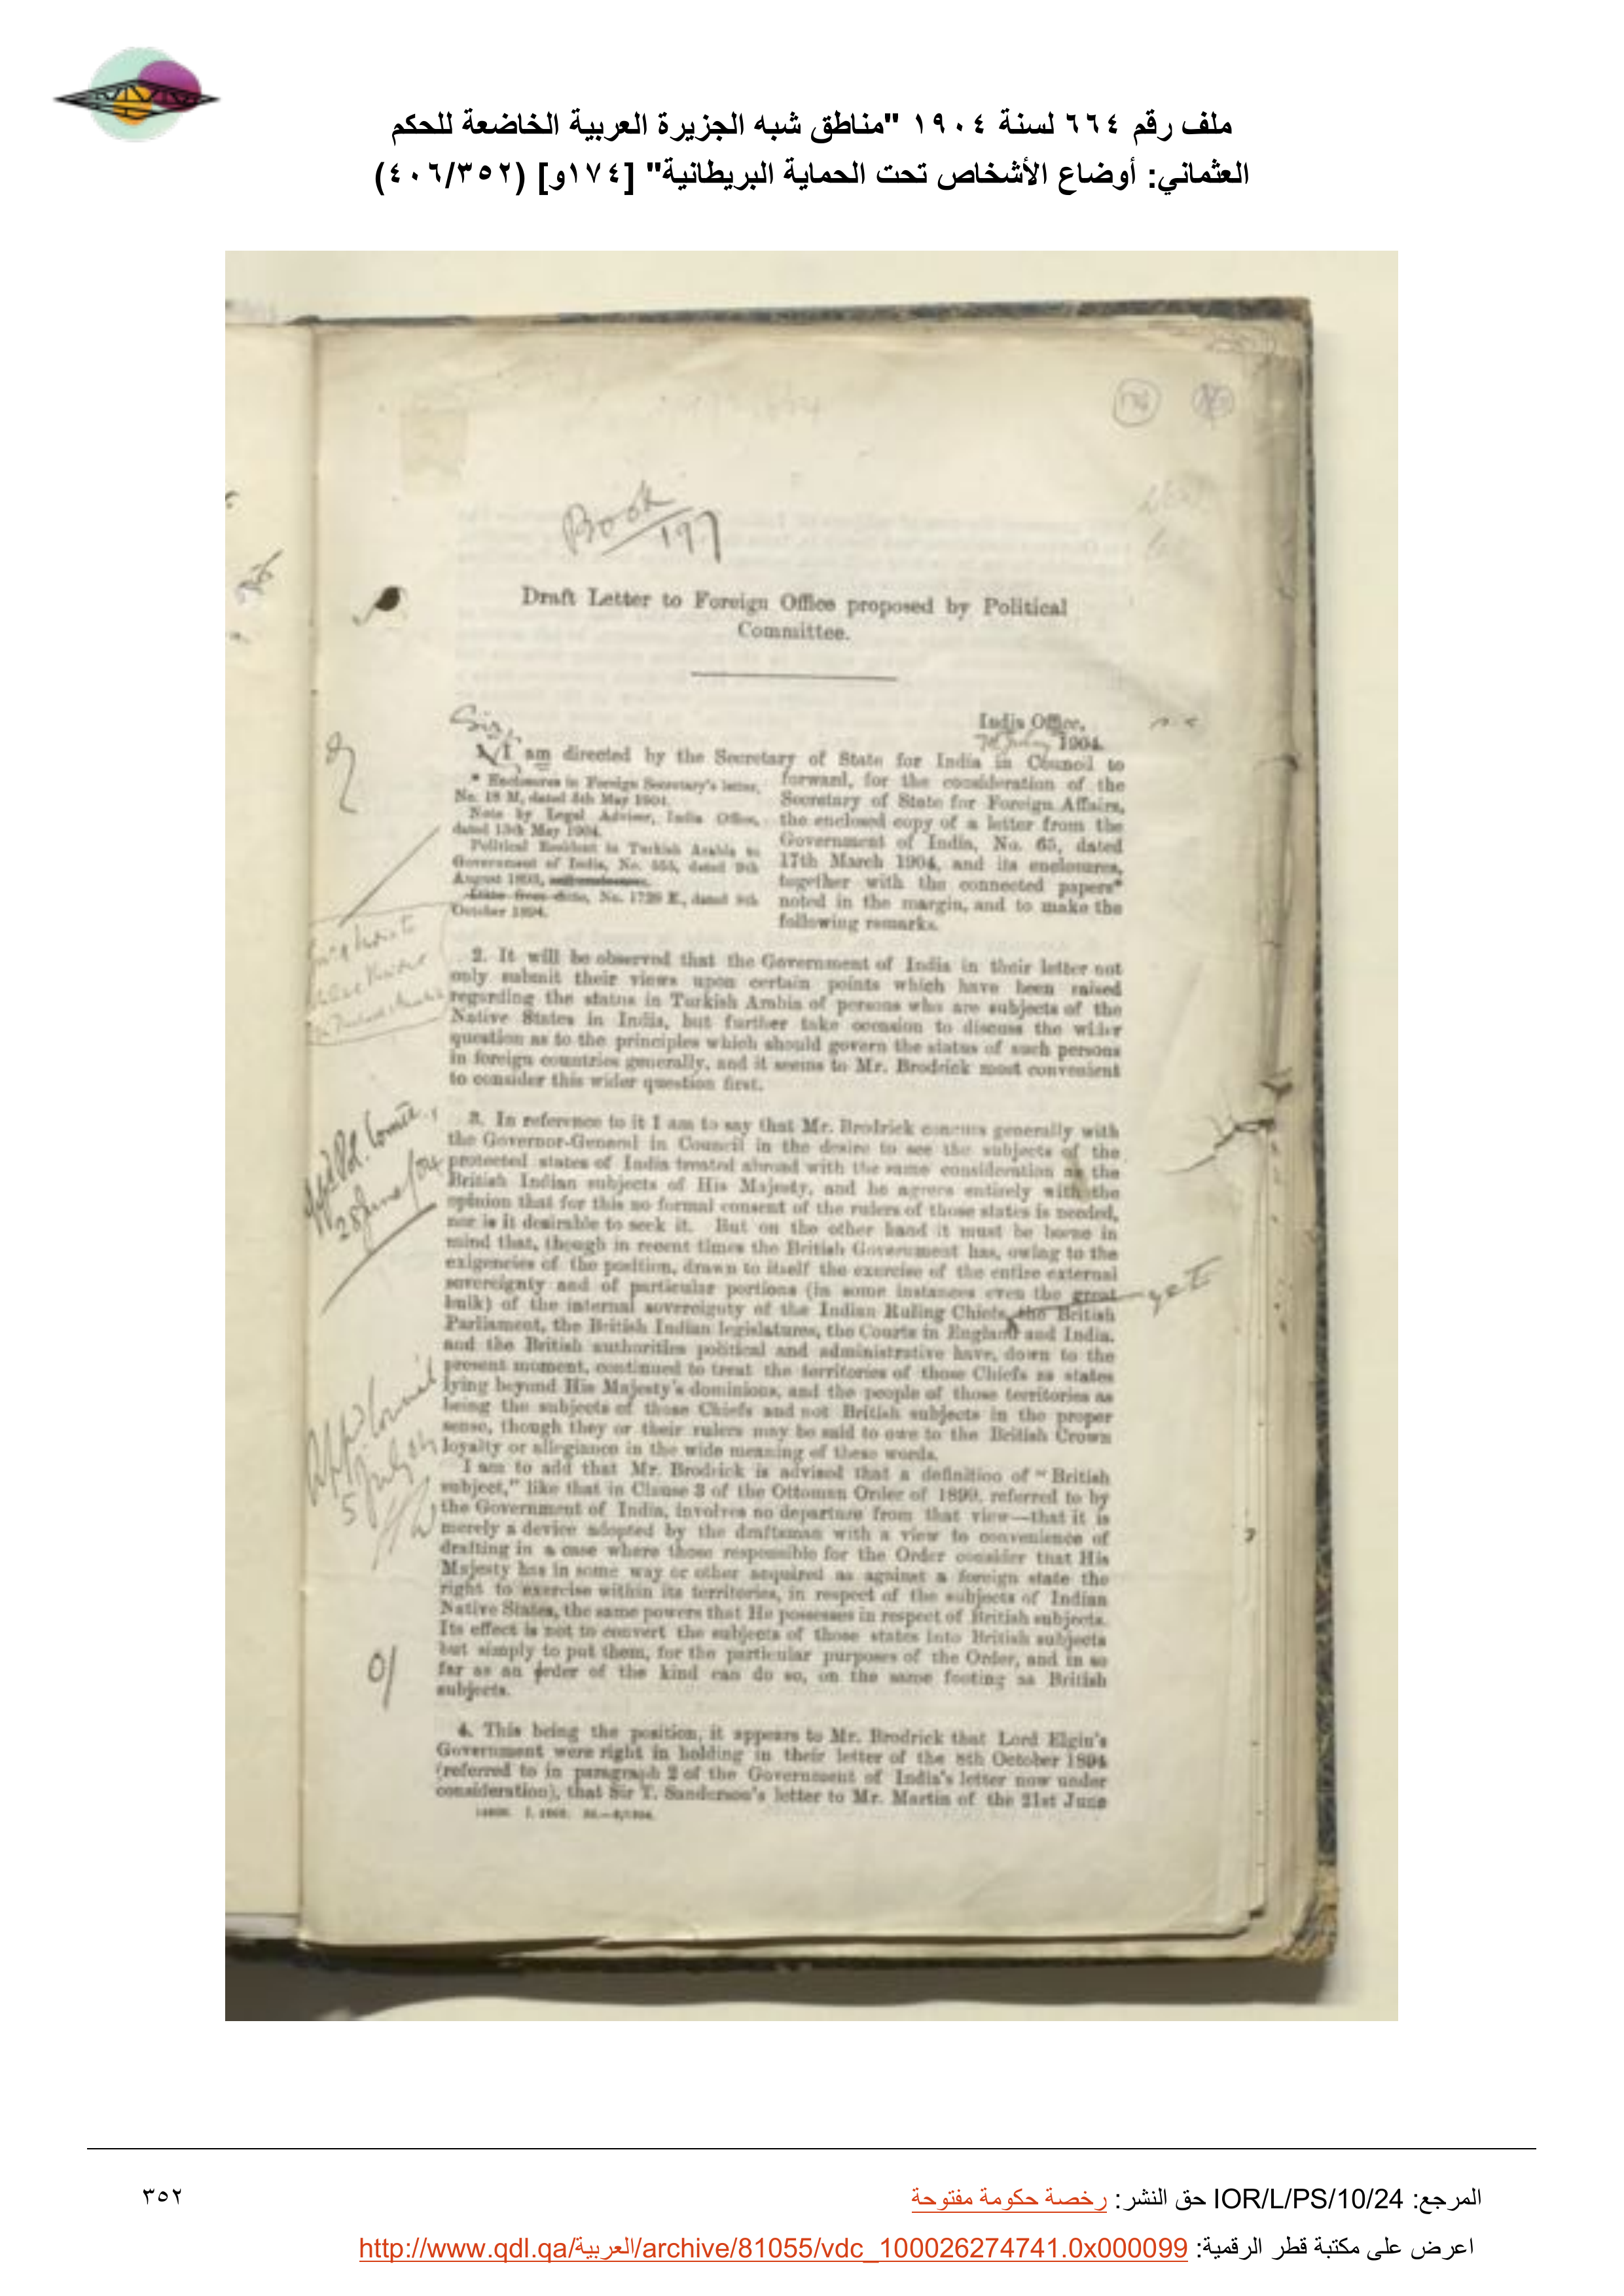 ملف رقم ٦٦٤ لسنة ١٩٠٤ "مناطق شبه الجزيرة العربية الخاضعة للحكم
العثماني: أوضاع الأشخاص تحت الحماية البريطانية" [١٧٤و] (٤٠٦/٣٥٢)
Book
197
Draft Letter to Foreign Office proposed by Political
Committee.
Sir,
India Office,
1904.
I am directed by the Secretary of State for India in Council to
* Enclosures in Foreign Secretary's letter,
No. 18 M, dated 5th May 1904.
Note by Legal Adviser, India Office,
dated 13th May 1904.
Political Resident in Turkish Arabia to
Government of India, No. dated 9th
August 1893,
Ditto from ditto, No. dated
October 1894.
forward, for the consideration of the
Secretary of State for Foreign Affairs,
the enclosed copy of a letter from the
Government of India, No. 65, dated
17th March 1904, and its enclosures,
together with the connected papers*
noted in the margin, and to make the
following remarks.
2. It will be observed that the Government of India in their letter not
only submit their views upon certain points which have been raised
regarding the status in Turkish Arabia of persons who are subjects of the
Native States in India, but further take occasion to discuss the wider
question as to the principles which should govern the status of such persons
in foreign countries generally, and it seems to Mr. Brodrick most convenient
to consider this wider question first.
3. In reference to it I am to say that Mr. Brodrick concurs generally with
the Governor-General in Council in the desire to see the subjects of the
protected states of India treated abroad with the same consideration as the
British Indian subjects of His Majesty, and he agrees entirely with the
opinion that for this no formal consent of the rulers of those states is needed,
nor is it desirable to seek it. But on the other hand it must be borne in
mind that, though in recent times the British Government has, owing to the
exigencies of the position, drawn to itself the exercise of the entire external
sovereignty and of particular portions (in some instances even the great
bulk) of the internal sovereignty of the Indian Ruling Chiefs, the British
yet
Parliament, the British Indian legislatures, the Courts in England and India,
and the British authorities political and administrative have, down to the
present moment, continued to treat the territories of those Chiefs as states
lying beyond His Majesty's dominions, and the people of those territories as
being the subjects of those Chiefs and not British subjects in the proper
sense, though they or their rulers may be said to owe to the British Crown
loyalty or allegiance in the wide meaning of these words.
I am to add that Mr. Brodrick is advised that a definition of "British
subject," like that in Clause 3 of the Ottoman Order of 1899, referred to by
the Government of India, involves no departure from that view—that it is
merely a device adopted by the draftsman with a view to convenience of
drafting in a case where those responsible for the Order consider that His
Majesty has in some way or other acquired as against a foreign state the
right to exercise within its territories, in respect of the subjects of Indian
Native States, the same powers that He possesses in respect of British subjects.
Its effect is not to convert the subjects of those states into British subjects
but simply to put them, for the particular purposes of the Order, and in so
far as an order of the kind can do so, on the same footing as British
subjects.
4. This being the position, it appears to Mr. Brodrick that Lord Elgin's
Government were right in holding in their letter of the 8th October 1894
(referred to in paragraph 2 of the Government of India's letter now under
consideration), that Sir T. Sanderson's letter to Mr. Martin of the 21st June
Appd Pol. Comtee,
28 June/04
Appd Council
5 July 04
المرجع: IOR/L/PS/10/24 حق النشر: رخصة حكومة مفتوحة
٣٥٢
اعرض على مكتبة قطر الرقمية: http://www.qdl.qa/العربية/archive/81055/vdc_100026274741.0x000099